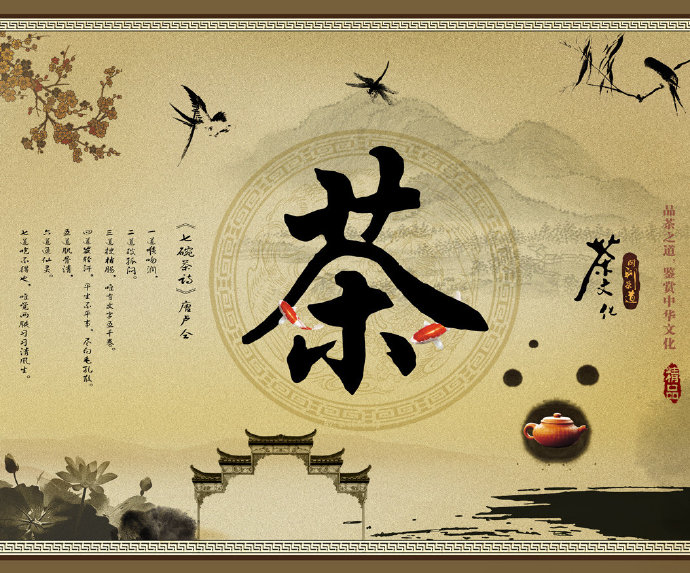 品茶之道 鉴赏中华文化
精品
茶文化
茶
《七碗茶诗》唐卢仝
一道喉吻润。
二道破孤闷。
三道搜枯肠。唯有文字五千卷。
四道发轻汗。平生不平事，尽向毛孔散。
五道肌骨清。
六道通仙灵。
七道吃不得也，唯觉两腋习习清风生。